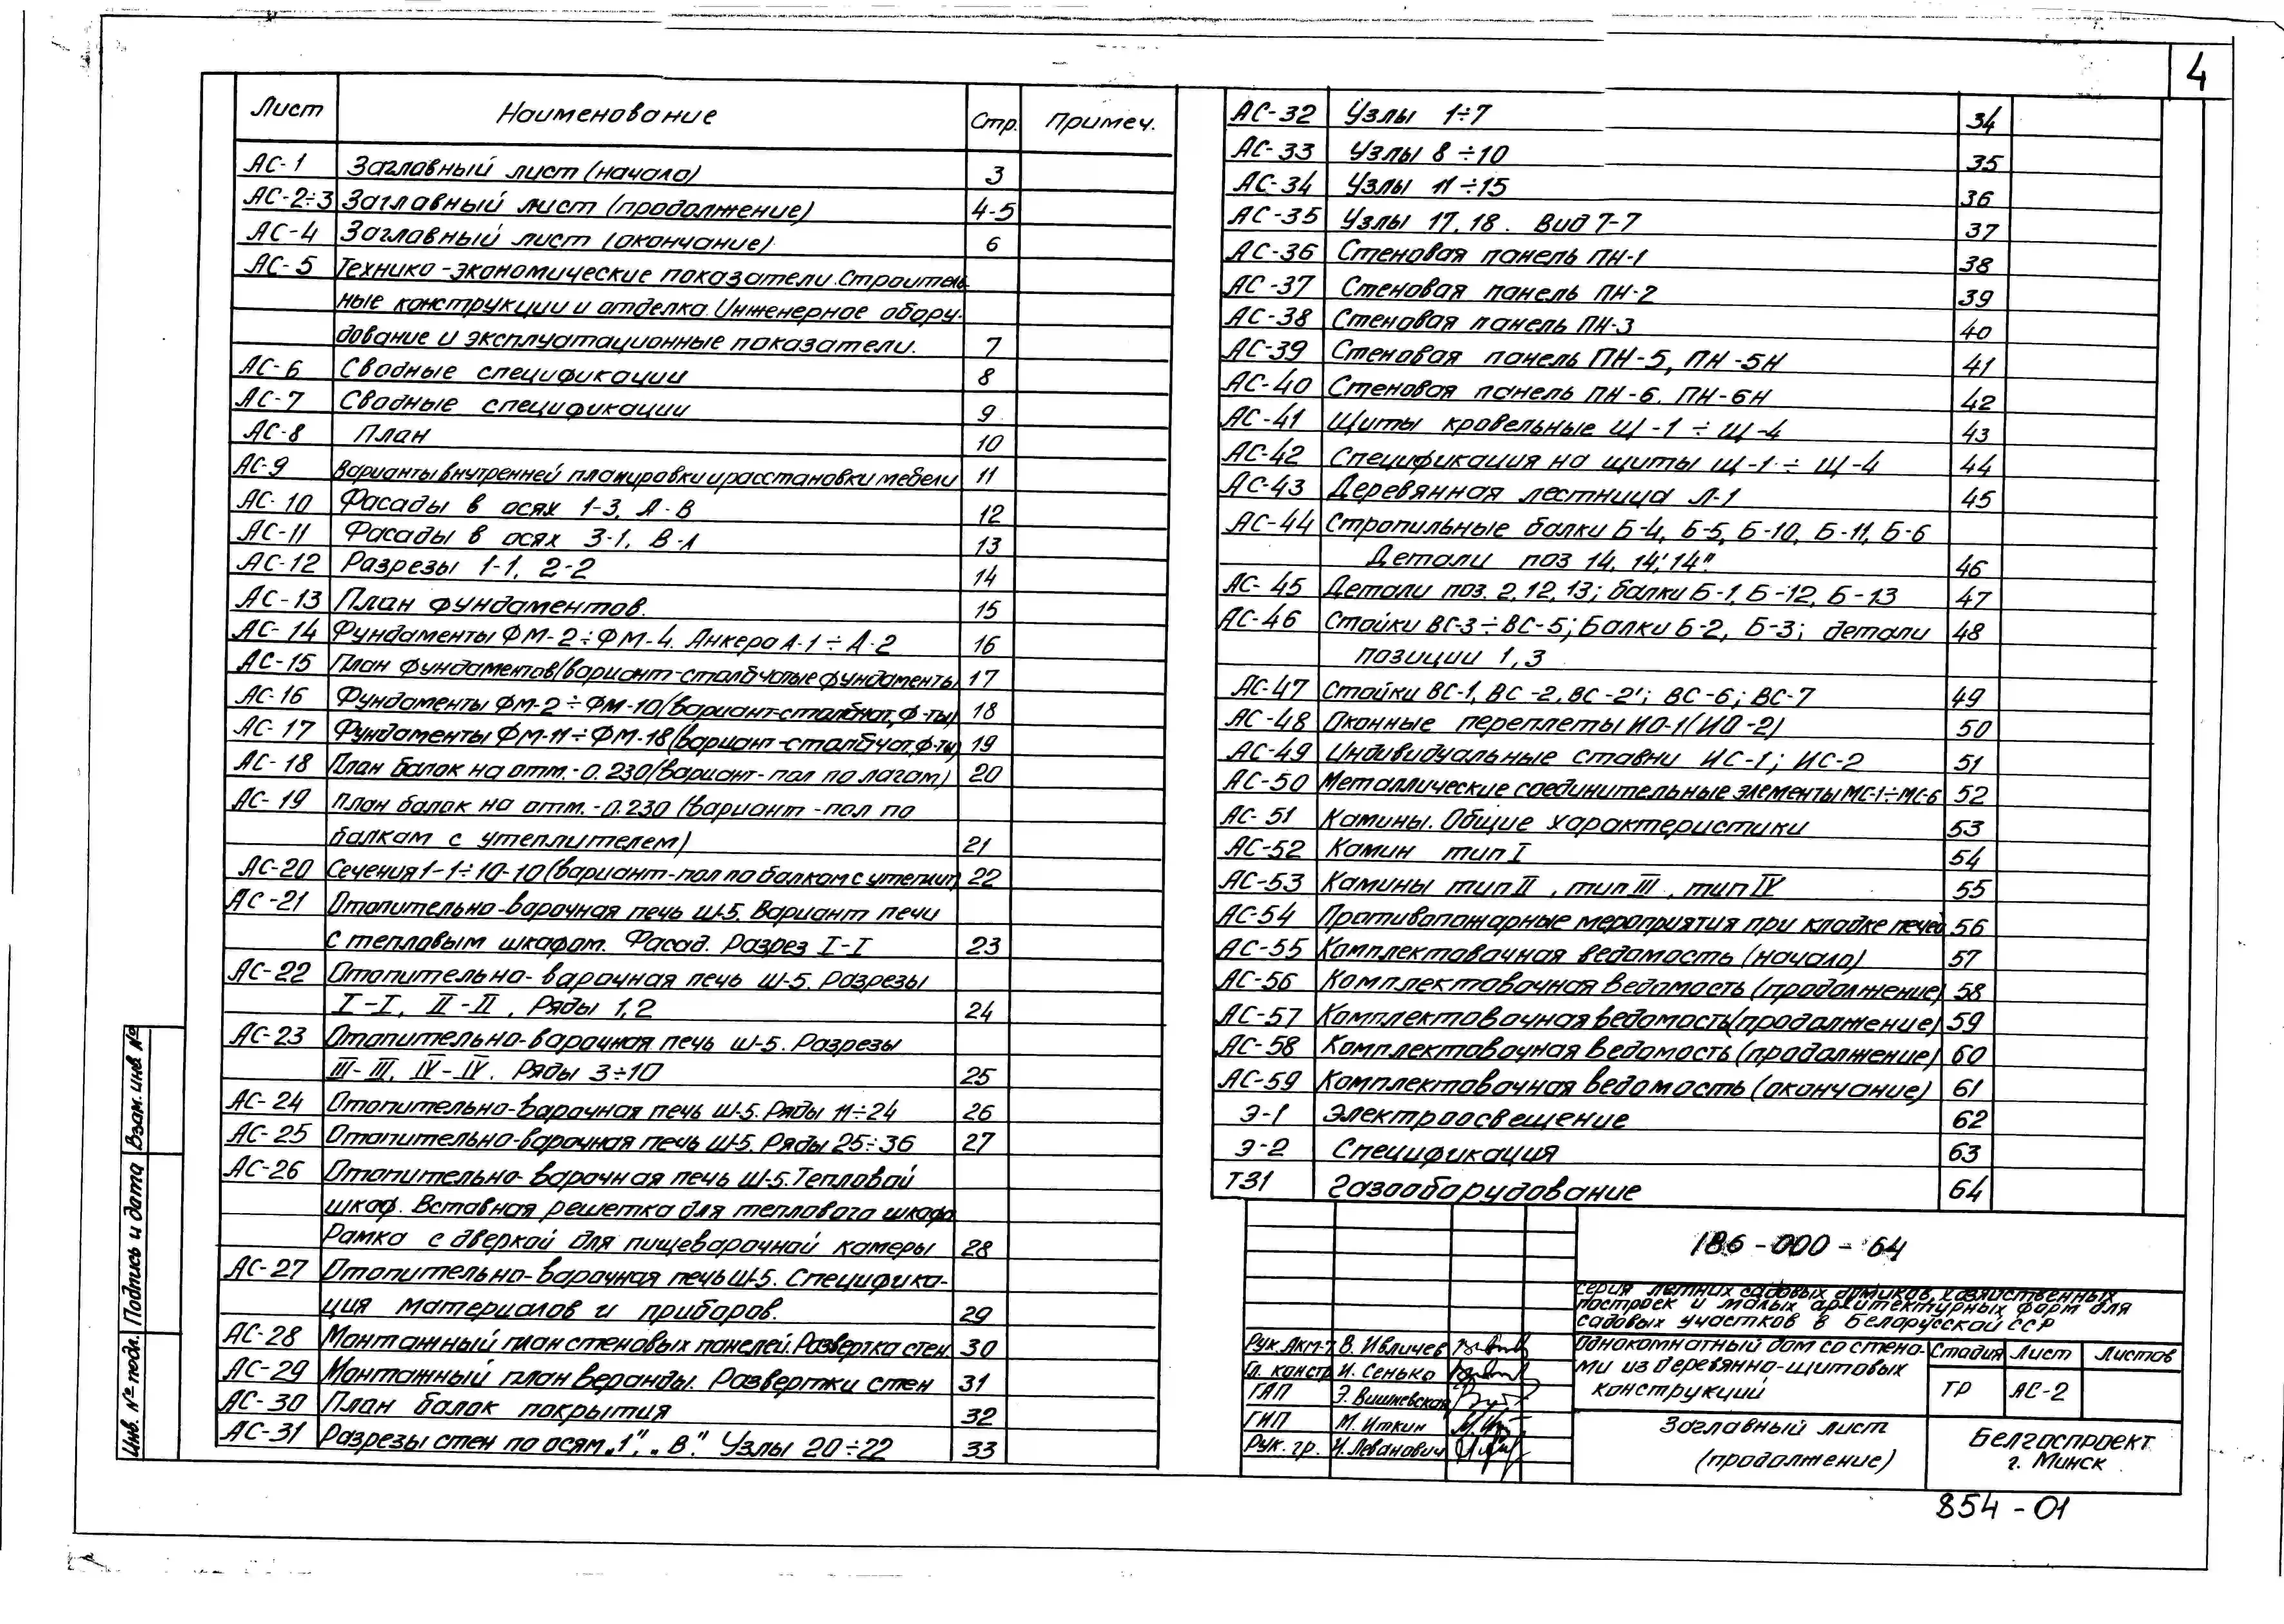 4
Лист Наименование Стр. Примеч.
АС-1 Заглавный лист (начало) 3
АС-2÷3 Заглавный лист (продолжение) 4-5
АС-4 Заглавный лист (окончание) 6
АС-5 Технико-экономические показатели. Строитель-
ные конструкции и отделка. Инженерное обору-
дование и эксплуатационные показатели. 7
АС-6 Сводные спецификации 8
АС-7 Сводные спецификации 9
АС-8 План 10
АС-9 Варианты внутренней планировки и расстановки мебели 11
АС-10 Фасады в осях 1-3, А-В 12
АС-11 Фасады в осях 3-1, В-А 13
АС-12 Разрезы 1-1, 2-2 14
АС-13 План фундаментов. 15
АС-14 Фундаменты ФМ-2÷ФМ-4. Анкера А-1÷А-2 16
АС-15 План фундаментов (вариант-столбчатые фундаменты) 17
АС-16 Фундаменты ФМ-2÷ФМ-10 (вариант-столбчат. ф-ты) 18
АС-17 Фундаменты ФМ-11÷ФМ-18 (вариант-столбчат. ф-ты) 19
АС-18 План балок на отм.-0.230 (вариант-пол по лагам) 20
АС-19 План балок на отм.-0.230 (вариант-пол по
балкам с утеплителем) 21
АС-20 Сечения 1-1÷10-10 (вариант-пол по балкам с утеплит) 22
АС-21 Отопительно-варочная печь Ш-5. Вариант печи
с тепловым шкафом. Фасад. Разрез I-I 23
АС-22 Отопительно-варочная печь Ш-5. Разрезы
I-I, II-II. Ряды 1,2 24
АС-23 Отопительно-варочная печь Ш-5. Разрезы
III-III, IV-IV. Ряды 3÷10 25
АС-24 Отопительно-варочная печь Ш-5. Ряды 11÷24 26
АС-25 Отопительно-варочная печь Ш-5. Ряды 25÷36 27
АС-26 Отопительно-варочная печь Ш-5. Тепловой
шкаф. Вставная решетка для теплового шкафа
Рамка с дверкой для пищеварочной камеры 28
АС-27 Отопительно-варочная печь Ш-5. Специфика-
ция материалов и приборов. 29
АС-28 Монтажный план стеновых панелей. Развертка стен 30
АС-29 Монтажный план веранды. Развертки стен 31
АС-30 План балок покрытия 32
АС-31 Разрезы стен по осям „1", „В". Узлы 20÷22 33
АС-32 Узлы 1÷7 34
АС-33 Узлы 8÷10 35
АС-34 Узлы 11÷15 36
АС-35 Узлы 17, 18. Вид 7-7 37
АС-36 Стеновая панель ПН-1 38
АС-37 Стеновая панель ПН-2 39
АС-38 Стеновая панель ПН-3 40
АС-39 Стеновая панель ПН-5, ПН-5Н 41
АС-40 Стеновая панель ПН-6, ПН-6Н 42
АС-41 Щиты кровельные Щ-1÷Щ-4 43
АС-42 Спецификация на щиты Щ-1÷Щ-4 44
АС-43 Деревянная лестница Л-1 45
АС-44 Стропильные балки Б-4, Б-5, Б-10, Б-11, Б-6
Детали поз 14, 14', 14" 46
АС-45 Детали поз. 2, 12, 13; балки Б-1, Б-12, Б-13 47
АС-46 Стойки ВС-3÷ВС-5; Балки Б-2, Б-3; детали 48
позиции 1,3
АС-47 Стойки ВС-1, ВС-2, ВС-2'; ВС-6; ВС-7 49
АС-48 Оконные переплеты ИО-1 (ИО-2) 50
АС-49 Индивидуальные ставни ИС-1; ИС-2 51
АС-50 Металлические соединительные элементы МС-1÷МС-6 52
АС-51 Камины. Общие характеристики 53
АС-52 Камин тип I 54
АС-53 Камины тип II, тип III, тип IV 55
АС-54 Противопожарные мероприятия при кладке печей 56
АС-55 Комплектовочная ведомость (начало) 57
АС-56 Комплектовочная ведомость (продолжение) 58
АС-57 Комплектовочная ведомость (продолжение) 59
АС-58 Комплектовочная ведомость (продолжение) 60
АС-59 Комплектовочная ведомость (окончание) 61
Э-1 Электроосвещение 62
Э-2 Спецификация 63
ТЗ1 Газооборудование 64
186-000-64
Серия летних садовых домиков, хозяйственных
построек и малых архитектурных форм для
садовых участков в Белорусской ССР
Рук. Акм-7 В. Ивличев
Гл. констр И. Сенько
ГАП Э. Вишневская
ГИП М. Иткин
Рук. гр. И. Леванович
Однокомнатный дом со стена-
ми из деревянно-щитовых
конструкций
Стадия Лист Листов
ТР АС-2
Заглавный лист
(продолжение)
Белгоспроект
г. Минск
854-01
Инв. № подл. Подпись и дата Взам. инв. №